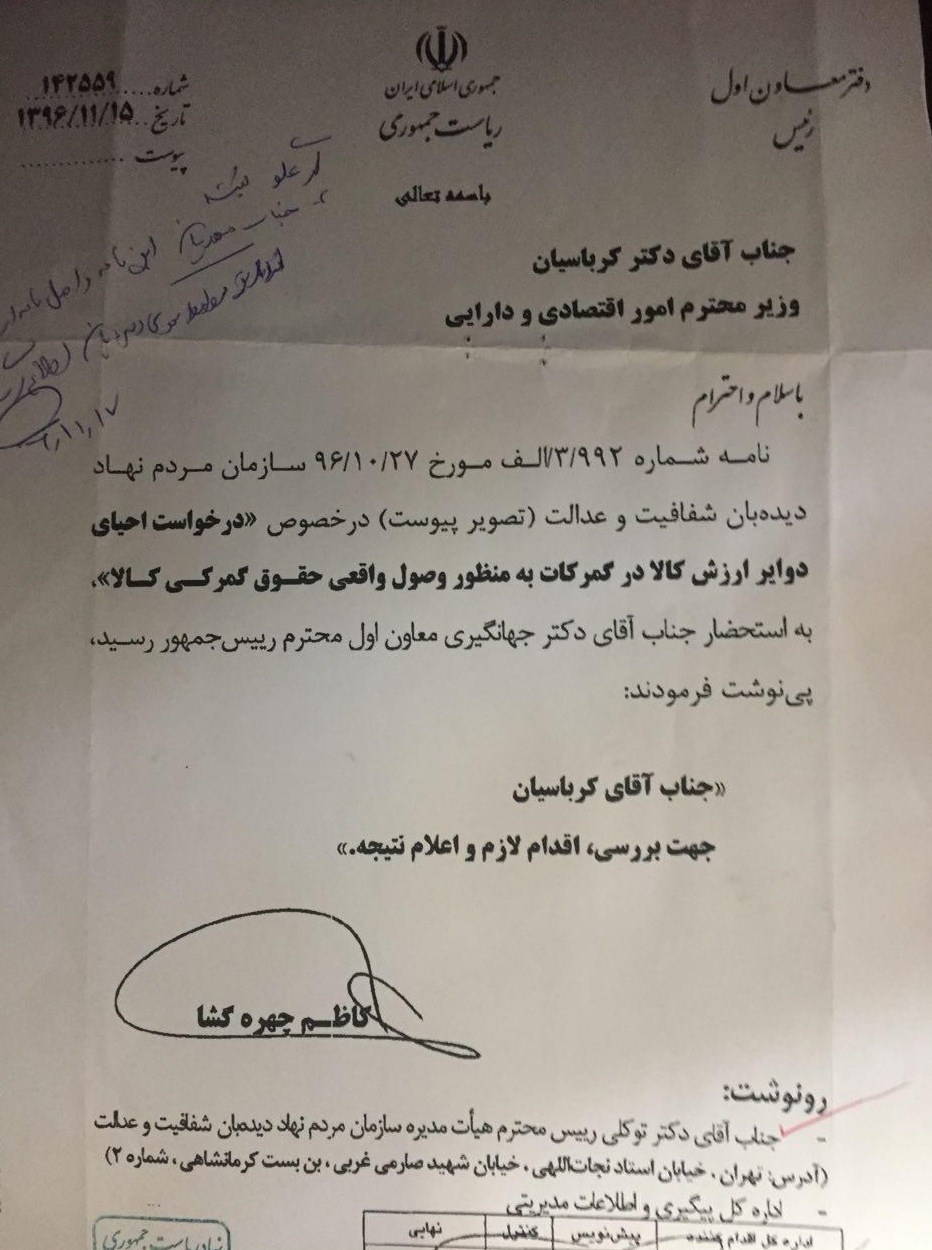 جمهوری اسلامی ایران
ریاست جمهوری
دفتر معاون اول
رئیس
شماره.....۱۴۲۵۵۹
تاریخ..۱۳۹۶/۱۱/۱۵
پیوست ............
باسمه تعالی
جناب آقای دکتر کرباسیان
وزیر محترم امور اقتصادی و دارایی
باسلام و احترام
نامه شماره ۳/۹۹۲/الف مورخ ۹۶/۱۰/۲۷ سازمان مردم نهاد
دیده‌بان شفافیت و عدالت (تصویر پیوست) درخصوص «درخواست احیای
دوایر ارزش کالا در گمرکات به منظور وصول واقعی حقوق گمرکی کالا»،
به استحضار جناب آقای دکتر جهانگیری معاون اول محترم رییس‌جمهور رسید،
پی‌نوشت فرمودند:
«جناب آقای کرباسیان
جهت بررسی، اقدام لازم و اعلام نتیجه.»
کاظم چهره گشا
رونوشت:
- جناب آقای دکتر توکلی رییس محترم هیأت مدیره سازمان مردم نهاد دیده‌بان شفافیت و عدالت
(آدرس: تهران ، خیابان استاد نجات‌اللهی ، خیابان شهید صارمی غربی ، بن بست کرمانشاهی ، شماره ۲)
- اداره کل پیگیری و اطلاعات مدیریتی
اداره کل اقدام کننده پیش‌نویس کنترل نهایی
نهاد ریاست جمهوری